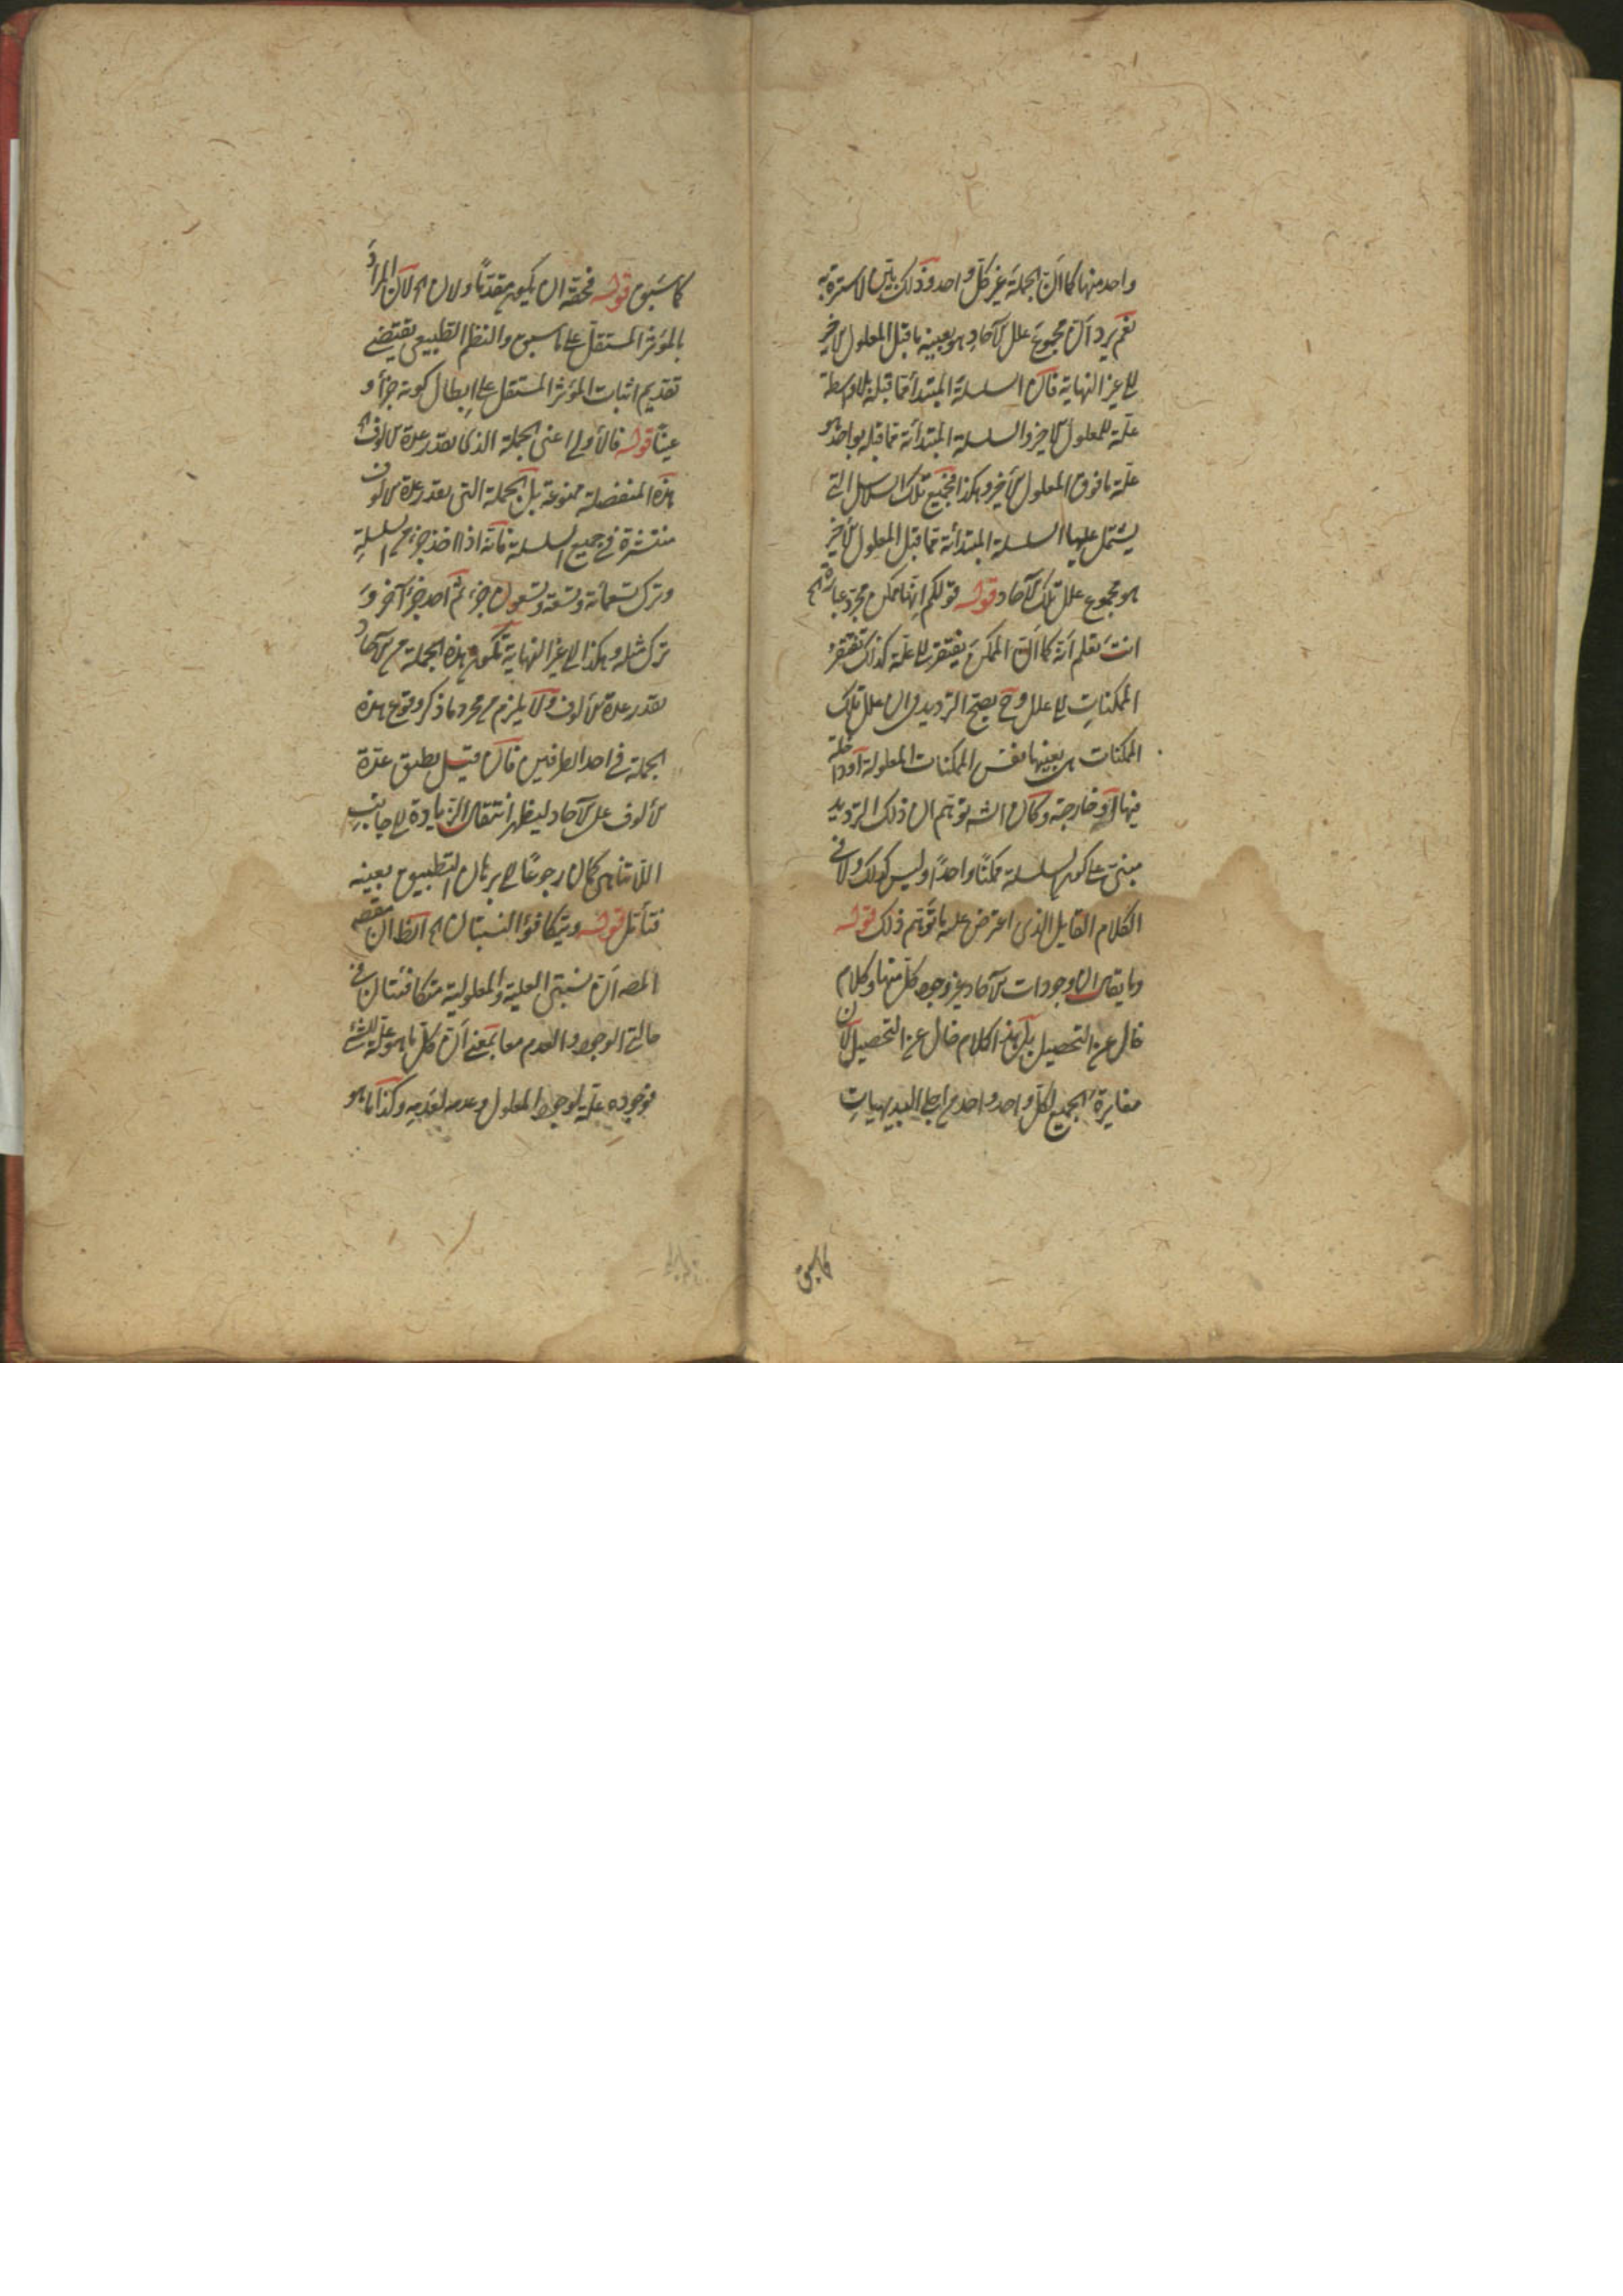 واحد منها كما ان الجملة غير كل واحد وذلك بين لا سترة به
نعم يرد ان مجموع علل الآحاد هو بعينه ما قبل المعلول الاخير
الى غير النهاية فان السلسلة المبتدأة مما قبله بلا واسطة
علة للمعلول الاخير والسلسلة المبتدأة مما قبله بواحد هو
علة ما فوق المعلول الأخير وهكذا فجميع تلك السلاسل التي
يشتمل عليها السلسلة المبتدأة مما قبل المعلول الأخير
هو مجموع علل تلك الآحاد قوله قولكم انها ممكن مجرد عبارة الخ
انت تعلم انه كما ان الممكن يفتقر الى علة كذلك تفتقر
الممكنات الى علل وح يصح الترديد فى ان علل تلك
الممكنات هى بعينها نفس الممكنات المعلولة أو داخلة
فيها او خارجة وكان الش توهم ان ذلك الترديد
مبنى على كون السلسلة ممكنًا واحدًا وليس كذلك ولا فى
الكلام القايل الذى اعترض عليه ما توهم ذلك قوله
وما يقال ان وجودات الآحاد غير وجود كل منها وكلام
خال عن التحصيل بل هذا كلام خال عن التحصيل لأن
مغايرة الجميع لكل واحد واحد من اجلى البديهيات
كما سبق
كما سَبق قوله فحقه ان يكون مقدمًا ولان الخ لان المرادَ
بالمؤثر المستقل على ما سبق والنظم الطبيعى يقتضى
تقديم اثبات المؤثر المستقل على ابطال كونه جزأ و
عينًا قوله فالأولى اعنى الجملة الذى بقدر عدة الالوف الخ
هذه المنفصلة ممنوعة بل الجملة التى بقدر عدة الألوف
منتشرة فى جميع السلسلة فانه اذا اخذ جزء من السلسلةِ
وترك تسعمائة وتسعة وتسعون جزء ثم اخذ جزء آخر وَ
ترك مثله وهكذا الى غير النهاية تكون هذه الجملة من الآحاد
بقدر عدة الألوف ولا يلزم من مجرد ما ذكر وقوع هذه
الجملة فى احد الطرفين فان قيل يطبق عدة
الألوف على الآحاد ليظهر انتقال الزيادة الى جانبِ
اللاتناهى كان رجوعًا الى برهان التطبيق بعينه
فتأمّل قوله ويتكافؤ النسبتان الخ الظ ان مقصد
المصه ان نسبتى العلية والمعلولية متكافئتان فى
حالتى الوجود والعدم معا بمعنى أن كل ما هو علة للشئ
فوجوده علة لوجود المعلول وعدمه لعدمِهِ وكذا ما هو